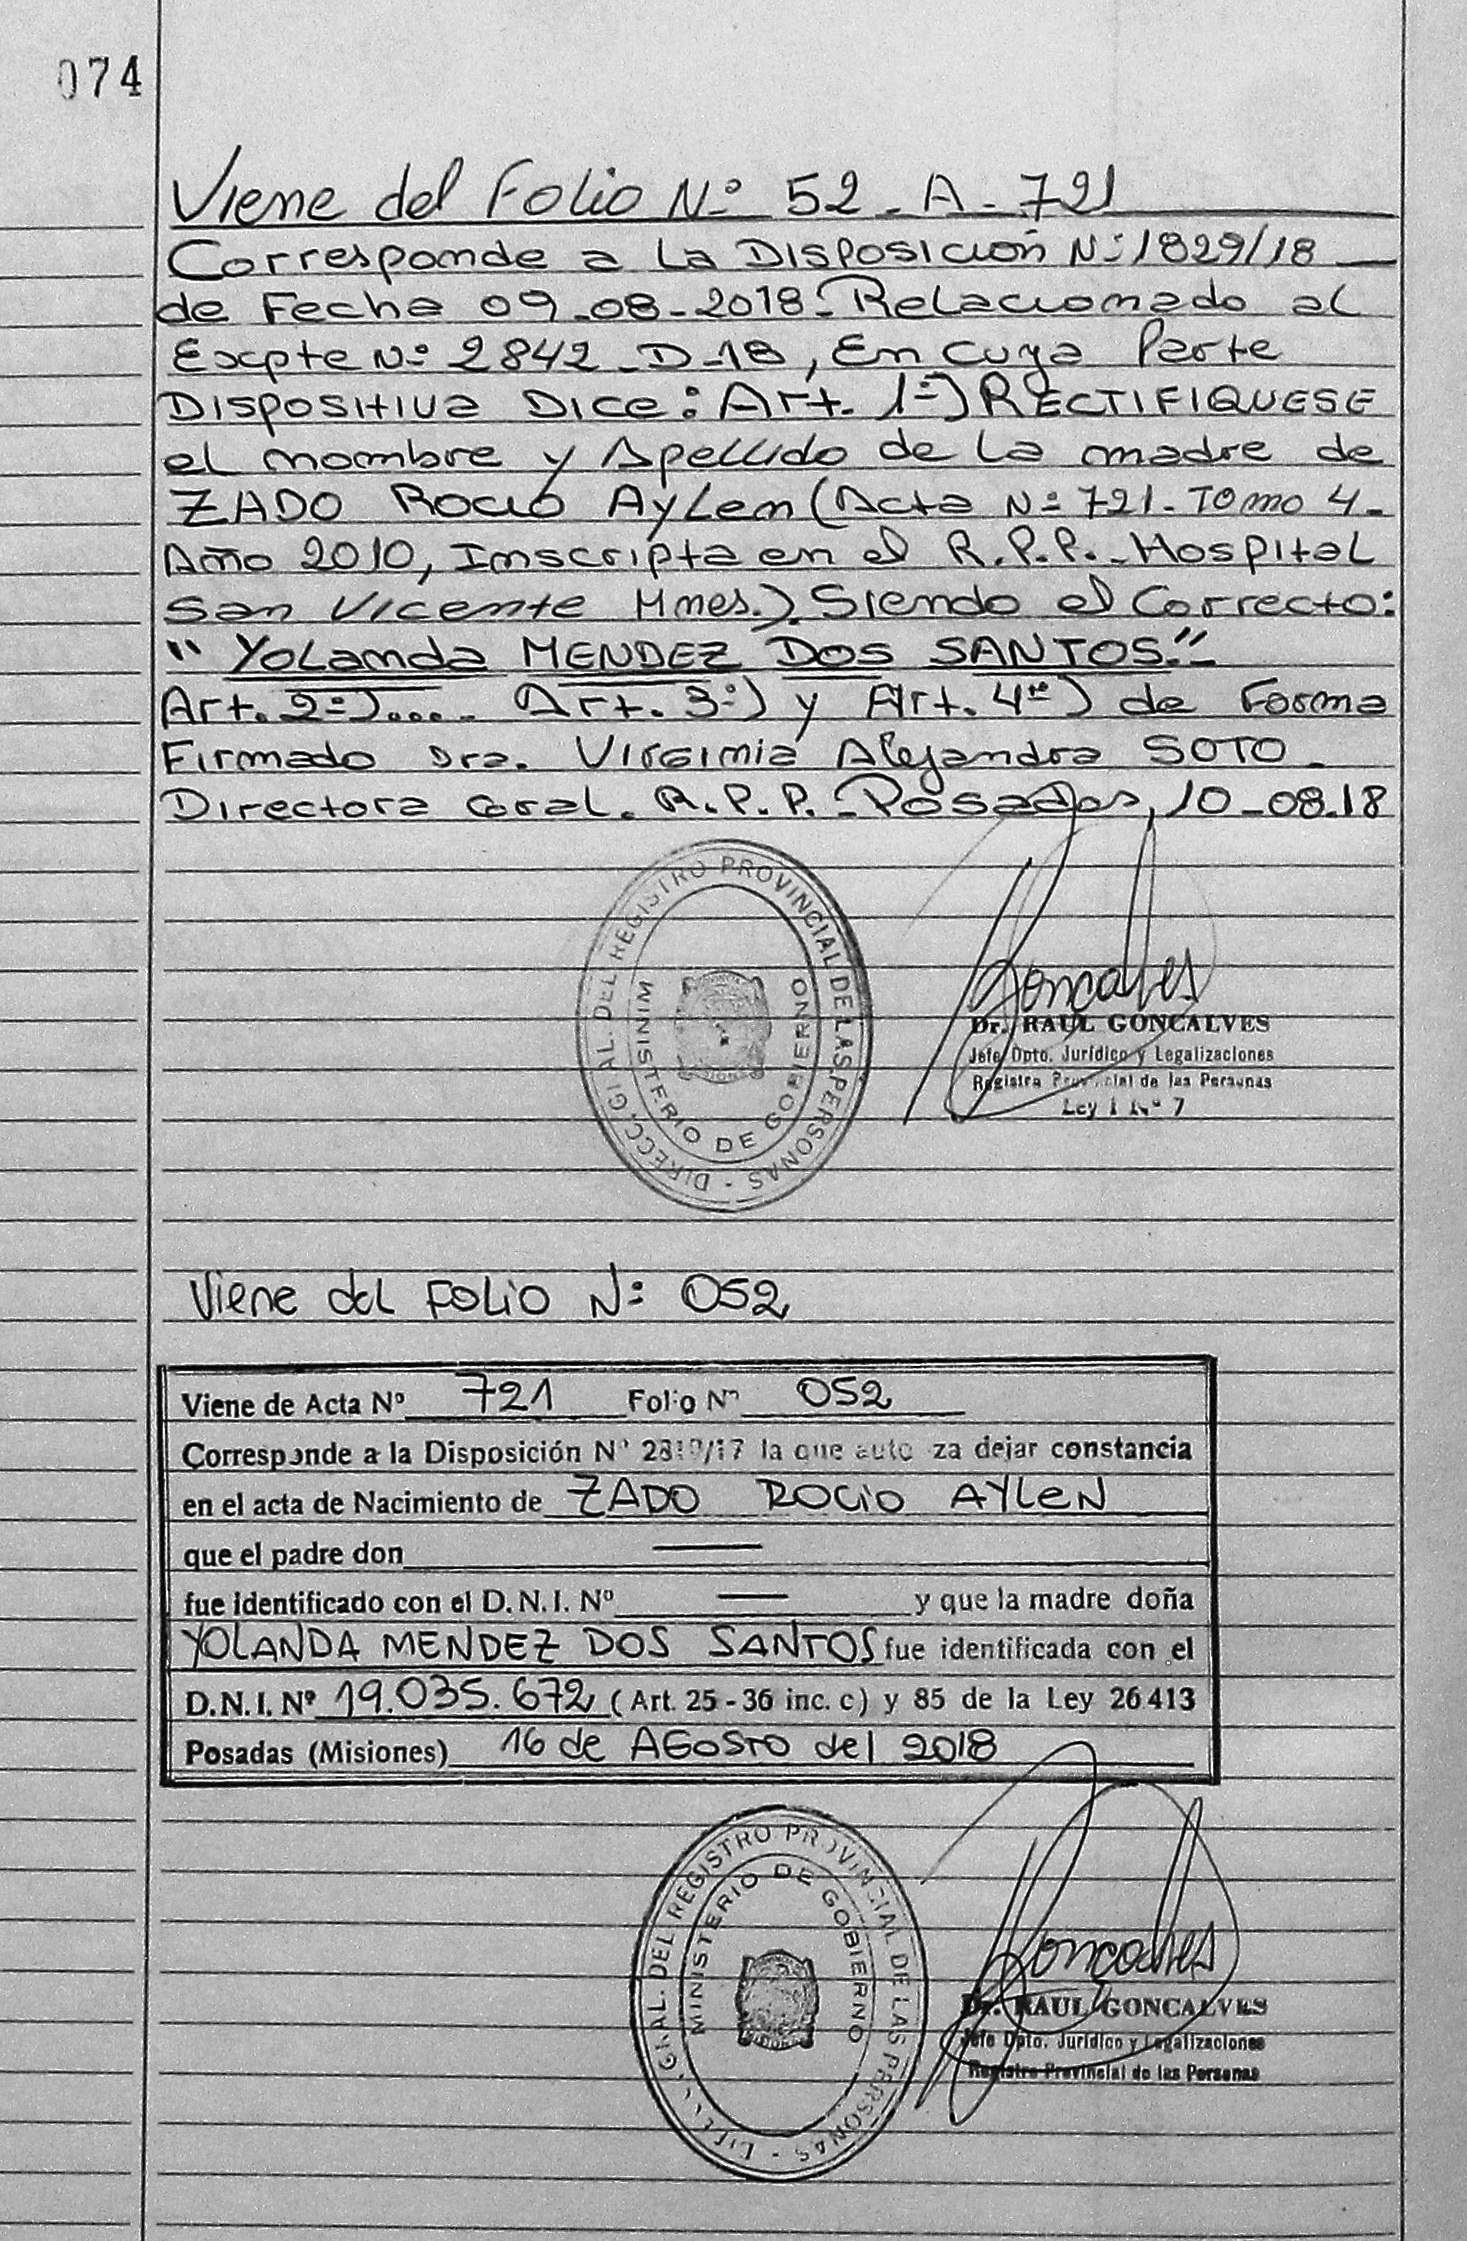 074
Viene del Folio Nº 52 - A - 721
Corresponde a La Disposición Nº 1829/18
de Fecha 09-08-2018- Relacionado al
Expte Nº 2842-D-18, En cuya Parte
Dispositiva Dice: Art. 1º) RECTIFIQUESE
el nombre y Apellido de La madre de
ZADO Rocio AyLen (Acta Nº 721- Tomo 4-
Año 2010, Inscripta en el R.P.P.- Hospital
San Vicente Mnes.). Siendo el Correcto:
"Yolanda MENDEZ DOS SANTOS."-
Art. 2º).... Art. 3º) y Art. 4º) de Forma
Firmado Dra. Virginia Alejandra SOTO-
Directora Gral. R.P.P.- Posadas, 10-08-18
DIRECC. GRAL. DEL REGISTRO PROVINCIAL DE LAS PERSONAS -
MINISTERIO DE GOBIERNO
Goncalves
Dr. RAUL GONCALVES
Jefe Dpto. Jurídico y Legalizaciones
Registro Provincial de las Personas
Ley I Nº 7
Viene del Folio Nº 052
Viene de Acta Nº 721 Folio Nº 052
Corresponde a la Disposición Nº la que autoriza dejar constancia
en el acta de Nacimiento de ZADO ROCIO AYLEN
que el padre don —
fue identificado con el D.N.I. Nº — y que la madre doña
YOLANDA MENDEZ DOS SANTOS fue identificada con el
D.N.I. Nº 19.035.672 (Art. 25 - 36 inc. c) y 85 de la Ley 26 413
Posadas (Misiones) 16 de AGOSTO del 2018
GRAL. DEL REGISTRO PROVINCIAL DE LAS PERSONAS -
MINISTERIO DE GOBIERNO
Goncalves
Dr. RAUL GONCALVES
Jefe Dpto. Jurídico y Legalizaciones
Registro Provincial de las Personas